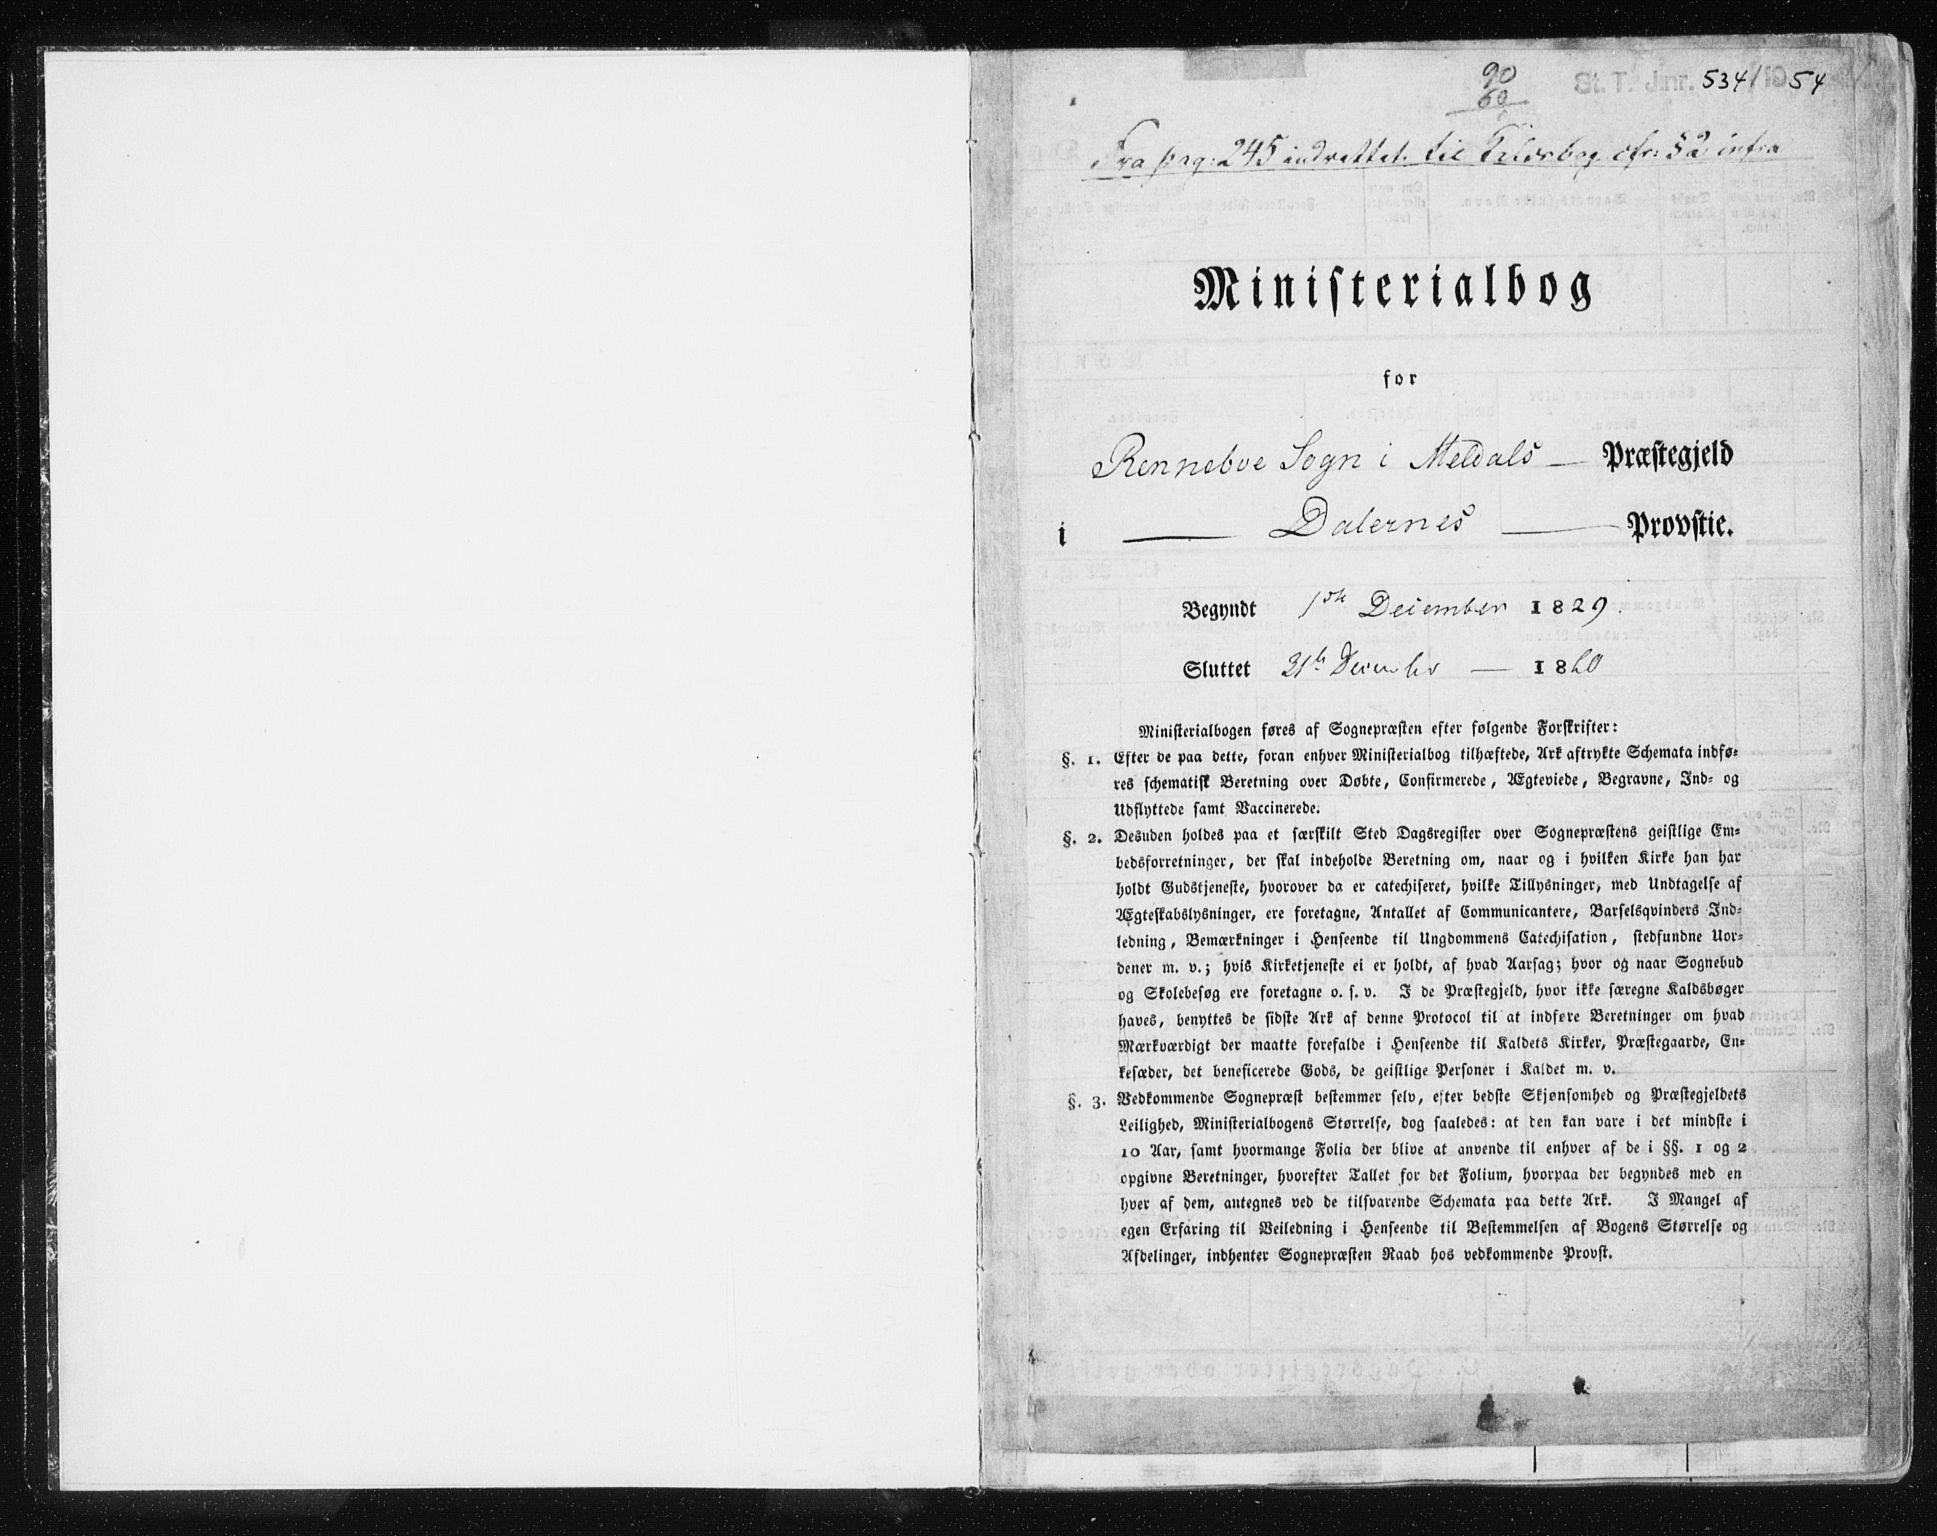 90
60
St. T. J.nr. 534/1954
Fra pag: 245 indrettet til Kaldsbog cfr: § 2 infra
Ministerialbog
for
Renneboe Sogn i Meldals Præstegjeld
i Dalernes Provstie.
Begyndt 1ste December 1829.
Sluttet 31te December 1860
Ministerialbogen føres af Sognepræsten efter følgende Forskrifter:
§. 1. Efter de paa dette, foran enhver Ministerialbog tilhæftede, Ark aftrykte Schemata indfø-
res schematisk Beretning over Døbte, Confirmerede, Ægteviede, Begravne, Ind- og
Udflyttede samt Vaccinerede.
§. 2. Desuden holdes paa et særskilt Sted Dagsregister over Sognepræstens geistlige Em-
bedsforretninger, der skal indeholde Beretning om, naar og i hvilken Kirke han har
holdt Gudstjeneste, hvorover da er catechiseret, hvilke Tillysninger, med Undtagelse af
Ægteskabslysninger, ere foretagne, Antallet af Communicantere, Barselqvinders Ind-
ledning, Bemærkninger i Henseende til Ungdommens Catechisation, stedfundne Uor-
dener m. v.; hvis Kirketjeneste ei er holdt, af hvad Aarsag; hvor og naar Sognebud
og Skolebesøg ere foretagne o. s. v. I de Præstegjeld, hvor ikke særegne Kaldsbøger
haves, benyttes de sidste Ark af denne Protocol til at indføre Beretninger om hvad
Mærkværdigt der maatte forefalde i Henseende til Kaldets Kirker, Præstegaarde, En-
kesæder, det beneficerede Gods, de geistlige Personer i Kaldet m. v.
§. 3. Vedkommende Sognepræst bestemmer selv, efter bedste Skjønsomhed og Præstegjeldets
Leilighed, Ministerialbogens Størrelse, dog saaledes: at den kan vare i det mindste i
10 Aar, samt hvormange Folia der blive at anvende til enhver af de i §§. 1 og 2
opgivne Beretninger, hvorefter Tallet for det Folium, hvorpaa der begyndes med en
hver af dem, antegnes ved de tilsvarende Schemata paa dette Ark. I Mangel af
egen Erfaring til Veiledning i Henseende til Bestemmelsen af Bogens Størrelse og
Afdelinger, indhenter Sognepræsten Raad hos vedkommende Provst.